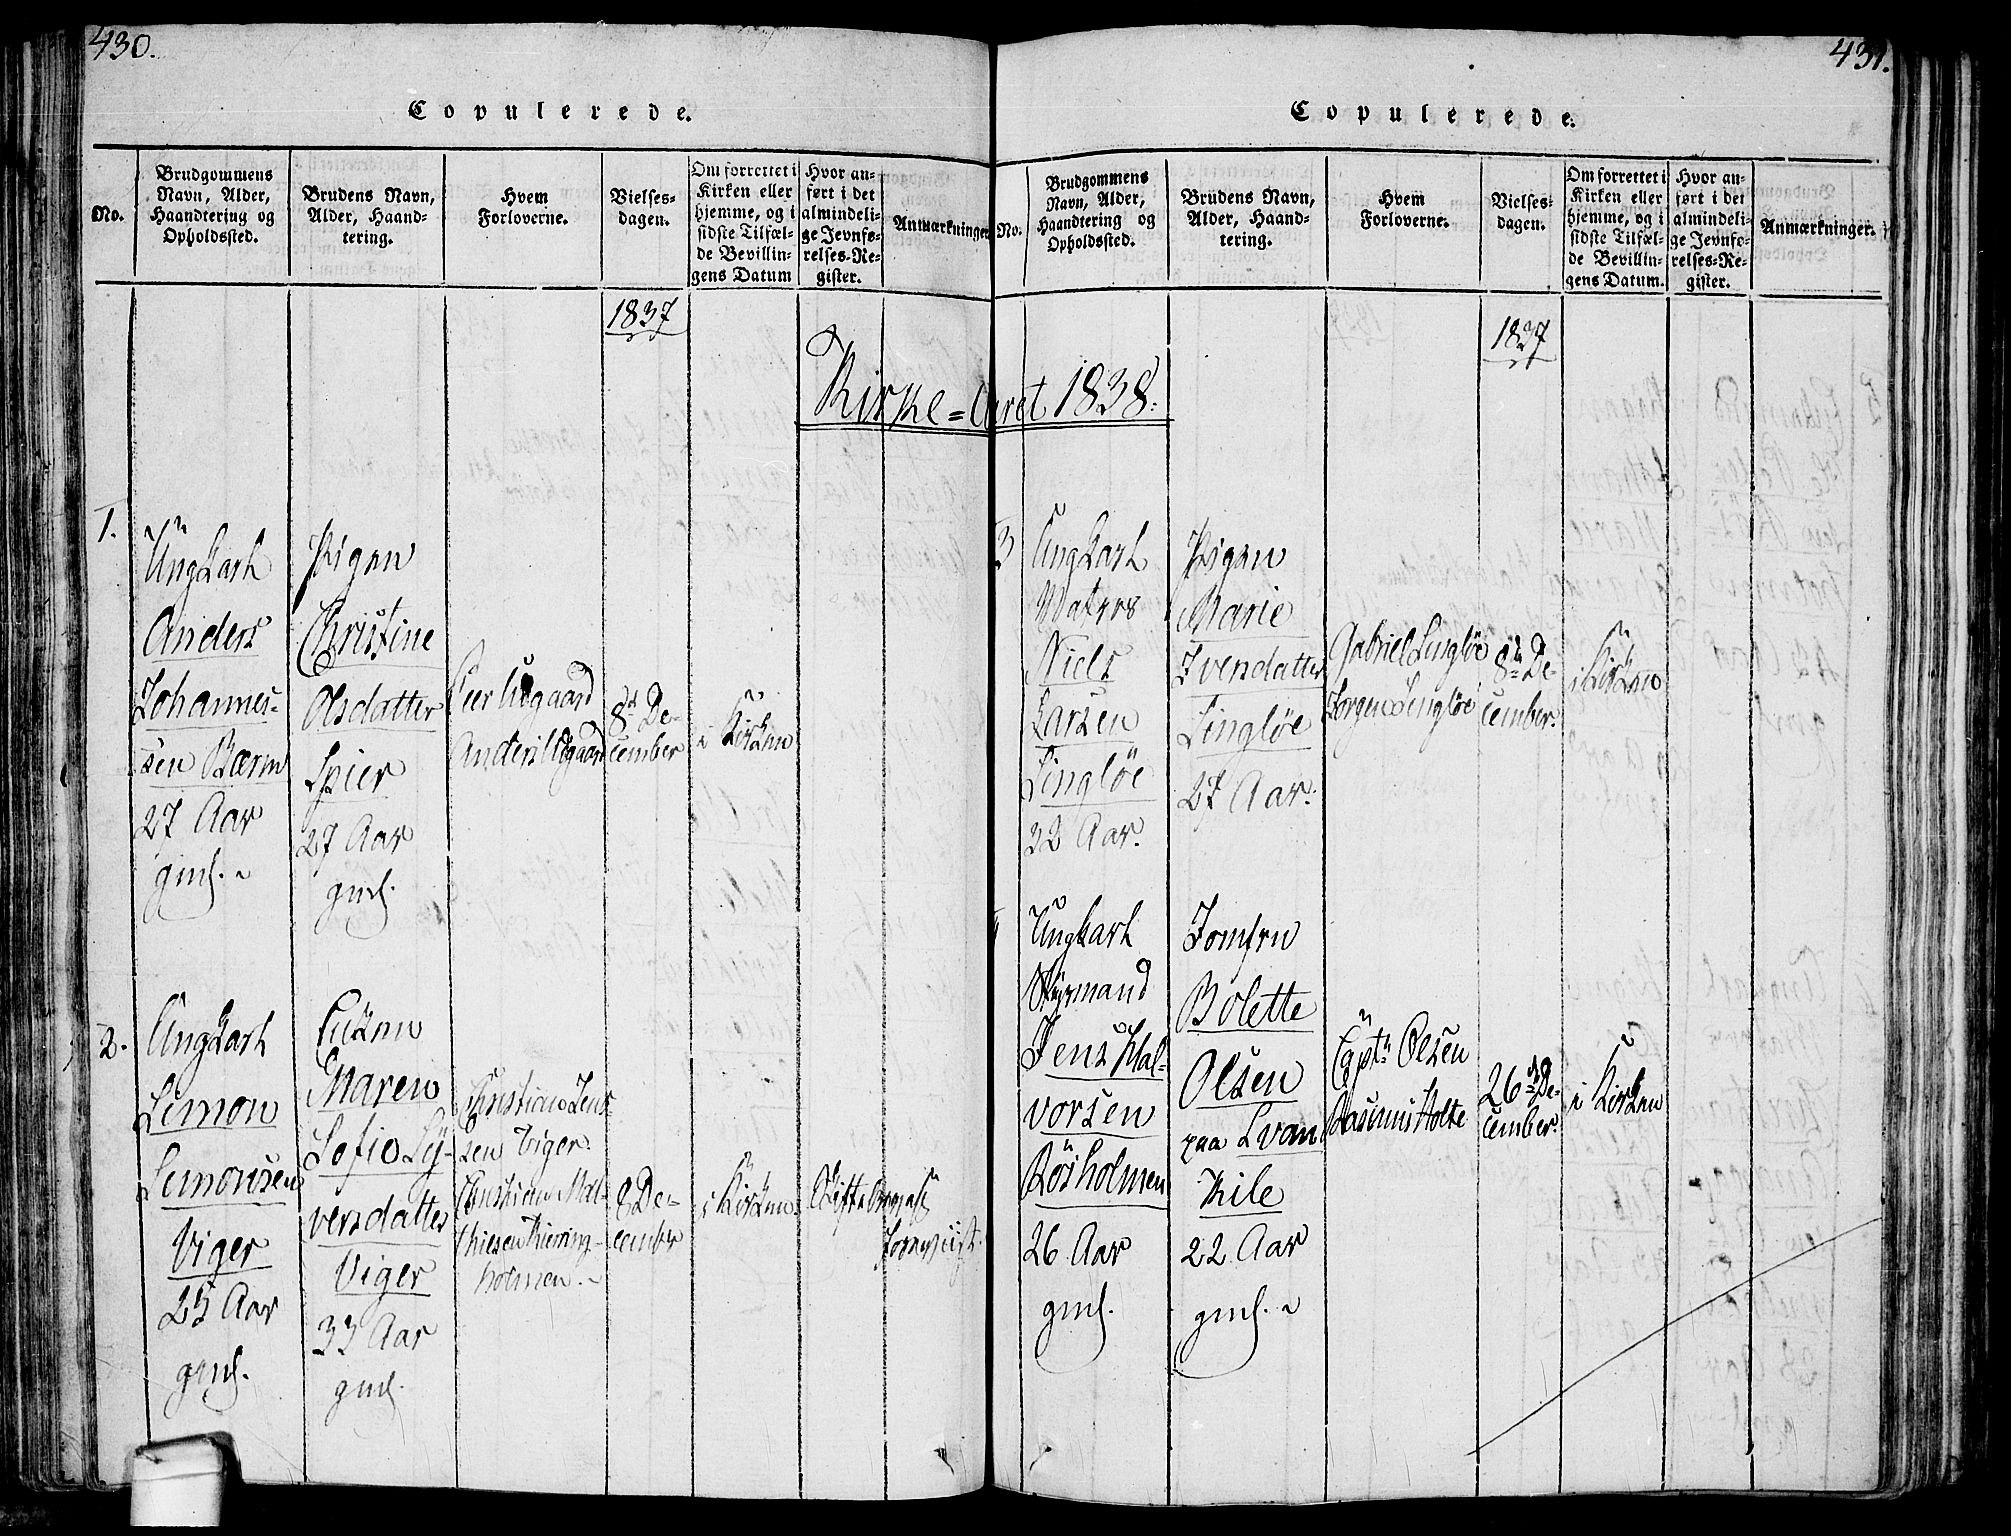 430.
Copulerede.
No.
Brudgommens
Navn, Alder,
Haandtering og
Opholdssted.
Brudens Navn,
Alder, Haand-
tering.
Hvem
Forloverne.
Vielses-
dagen.
Om forrettet i
Kirken eller
hjemme, og i
sidste Tilfæl-
de Bevillin-
gens Datum
Hvor an-
ført i det
almindeli-
ge Jevnfø-
relses-Re-
gister.
Anmærkninger
1837
Kirke=Aaret 1838.
1.
Ungkarl
Anders
Johannes-
sen Bærm
27 Aar
gmf.
Pigen
Christine
Olsdatter
Spier
27 Aar
gmf.
Peer
Anders
8de De-
cember
i Kirken
2.
Ungkarl
Simon
Simonsen
Viger
25 Aar
gmf.
Enken
Maren
Sofie Sy-
versdatter
Viger
33 Aar
gmf.
Christian Jens-
sen Viger
Christian Mat-
thiesen Kiering-
holmen.
8 De-
cember
i Kirken
431.
Copulerede.
No.
Brudgommens
Navn, Alder,
Haandtering og
Opholdssted.
Brudens Navn,
Alder, Haand-
tering.
Hvem
Forloverne.
Vielses-
dagen.
Om forrettet i
Kirken eller
hjemme, og i
sidste Tilfæl-
de Bevillin-
gens Datum.
Hvor an-
ført i det
almindeli-
ge Jevnfø-
relses-Re-
gister.
Anmærkninger.
1837
3
Ungkarl
Matros
Niels
Larsen
Singløe
32 Aar.
Pigen
Marie
Iversdatter
Singløe
27 Aar.
Gabriel Singløe
Jørgen Singløe
8de De-
cember.
i Kirken
Ungkarl
Styrmand
Jens Hal-
vorsen
Røsholmen
26 Aar
gmf.
Jomfru
Bolette
Olsen
paa Svan
Kile
22 Aar
gmf.
Captn Olsen
Rasmus Holte
26de De-
cember.
i Kirken